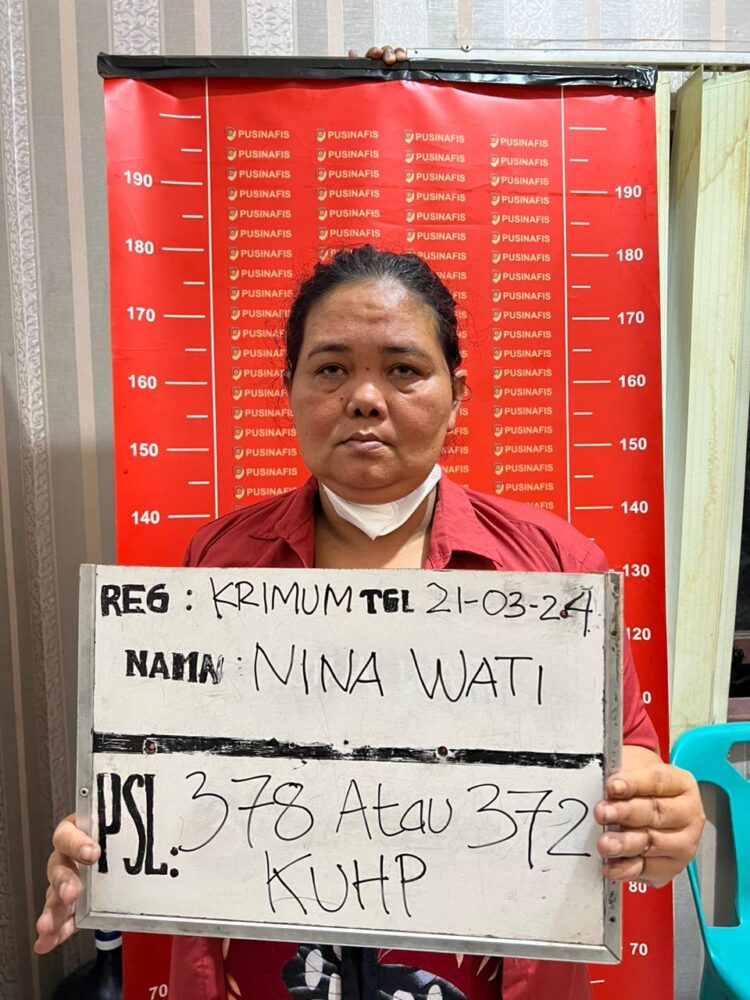 PUSINAFIS PUSINAFIS PUSINAFIS PUSINAFIS
190 190
180 180
170 170
160 160
150 150
140 140
130
120
REG : KRIMUM TGL 21-03-24
NAMA : NINA WATI
PSL : 378 Atau 372
KUHP
80
70 70